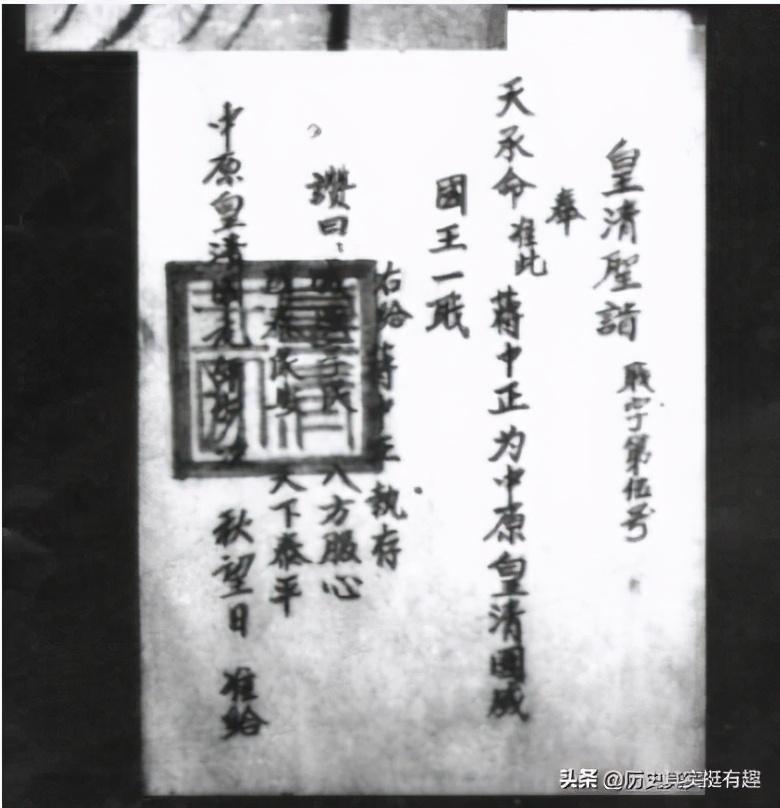 皇清聖詣 職字第伍号
奉
天承命准此 蔣中正为中原皇清國威
國王一職
右給蔣中正執存
讚曰: 子民 八方服心
泰民安 天下泰平
中原皇清國元 秋望日 准給
头条 @历史其实挺有趣